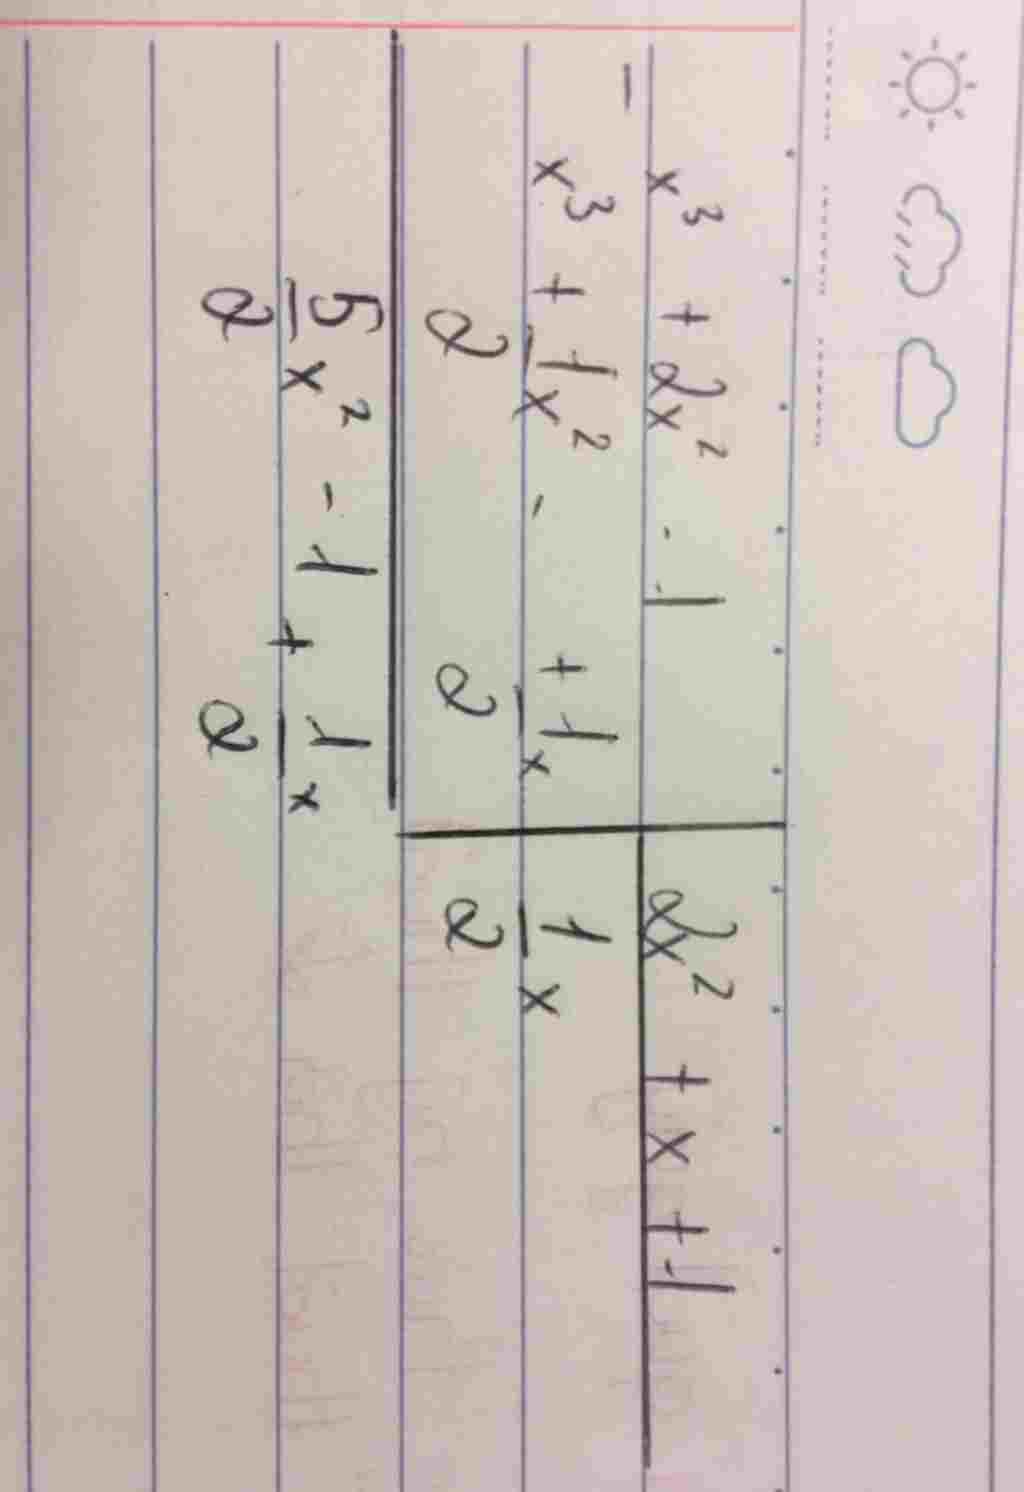 x³ + 2x² - 1 | 2x² + x + 1
− x³ + 1/2 x² - + 1/2 x | 1/2 x
5/2 x² - 1 + 1/2 x